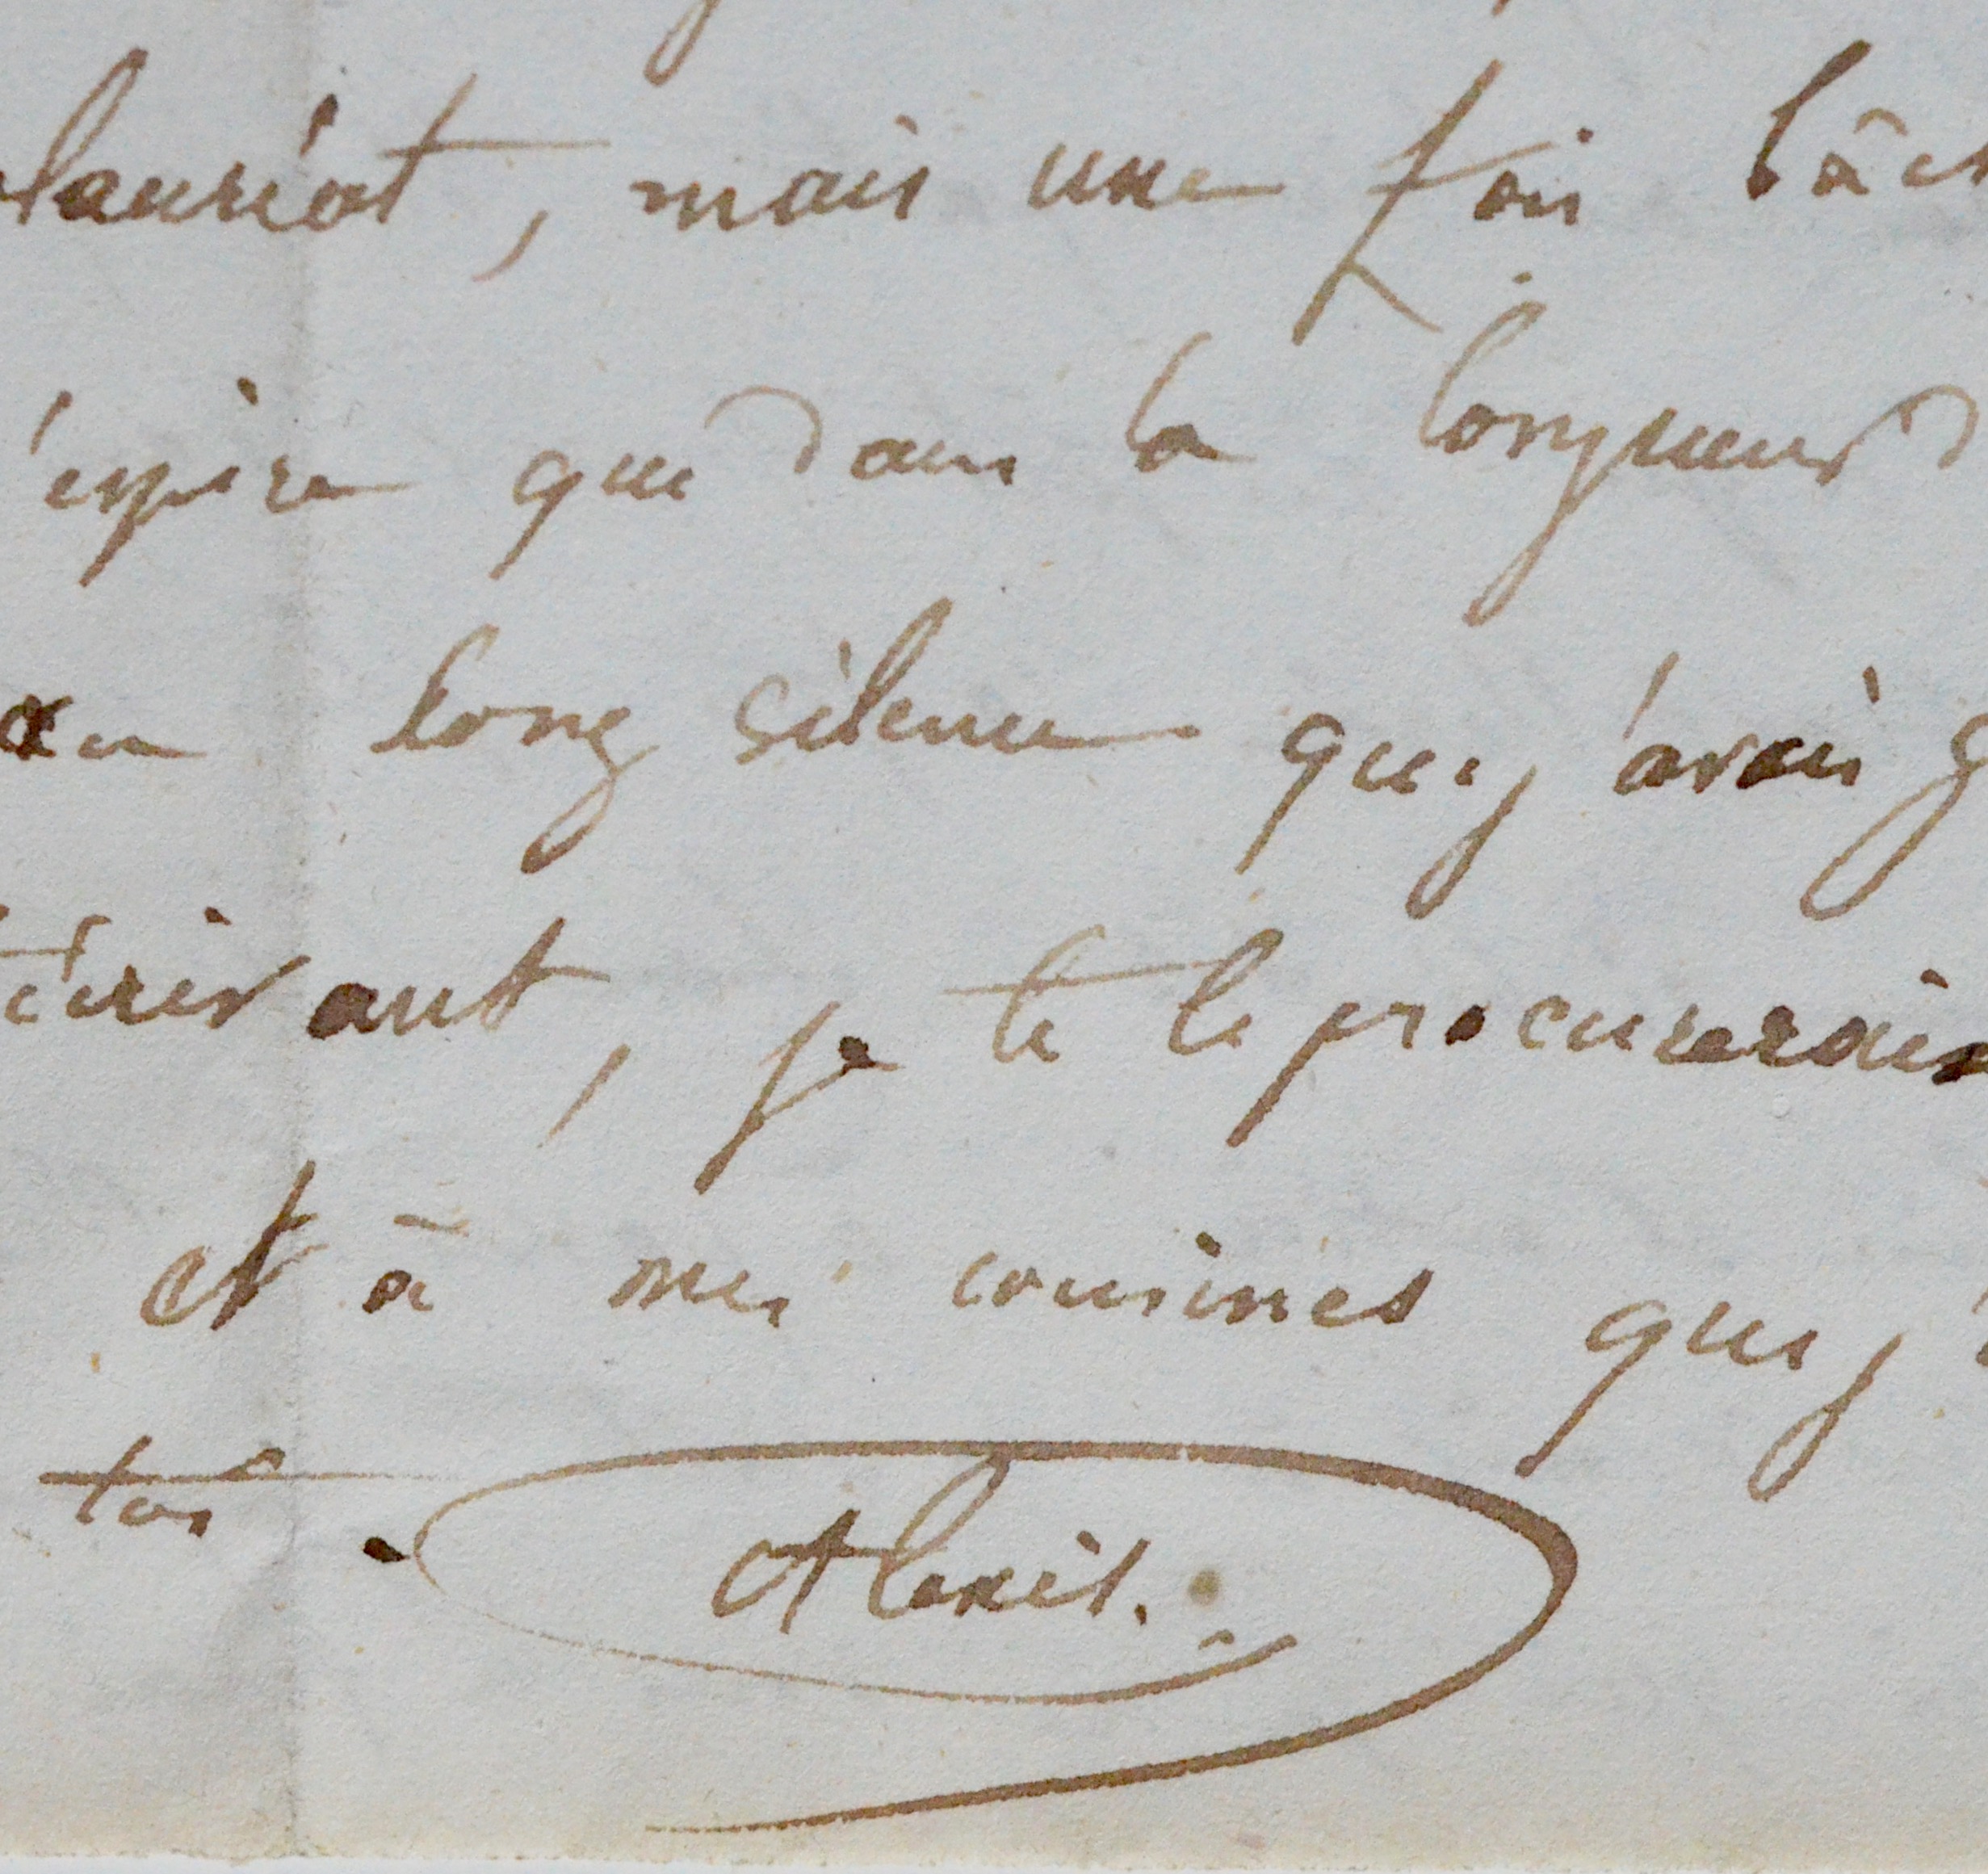 lauréat, mais une fois bâch
'espère que dans la longueur d
long silence que j'avais g
écrivant, je te le procurerais
et à mes cousines que j'
toi.
Alexis.